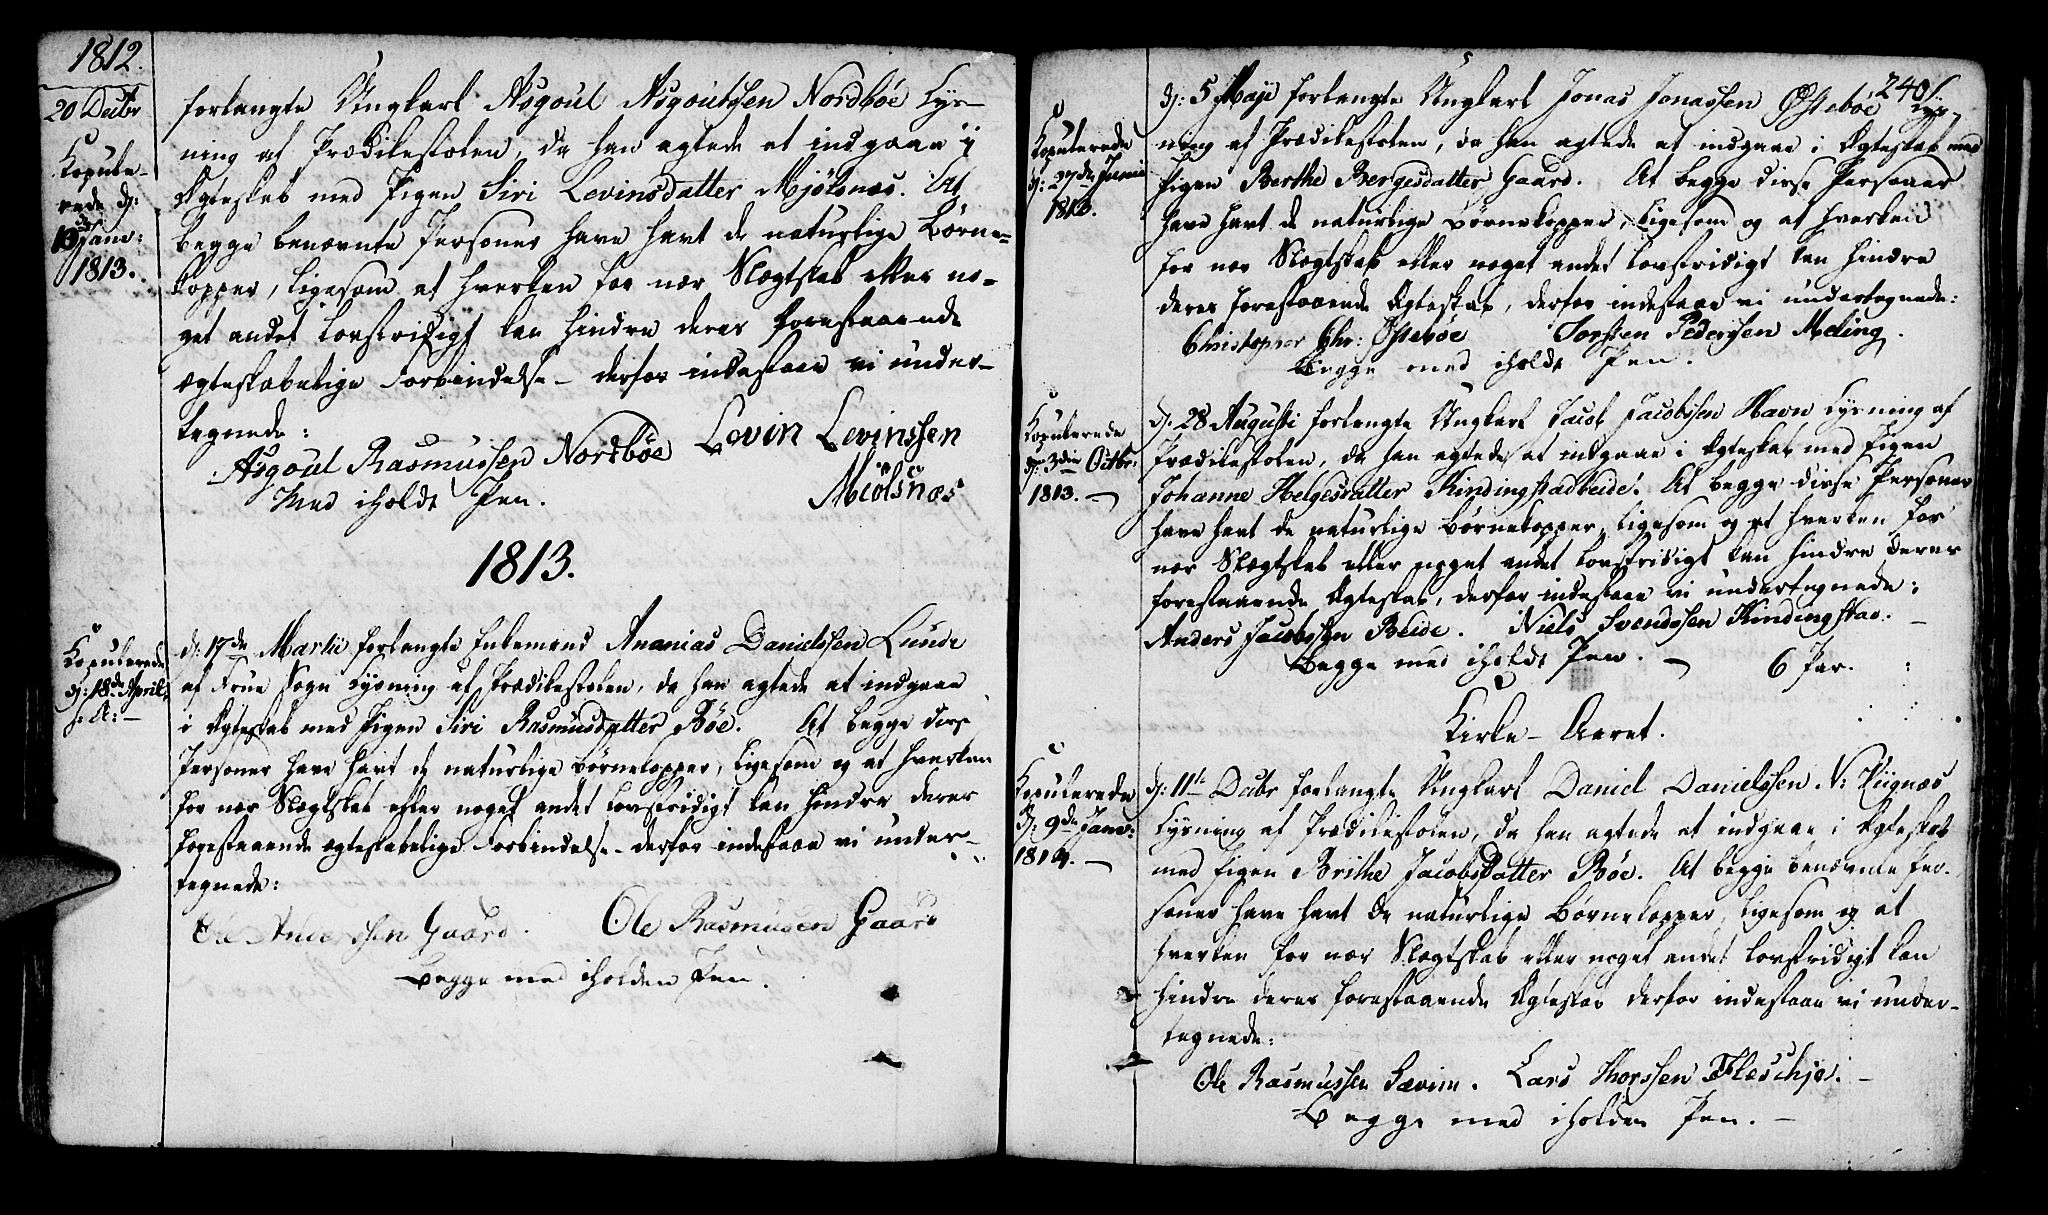 1812.
20 Decbr
Kopule-
rede d:
13 Janu:
1813.
forlangte Ungkarl Asgoul Asgoulssen Nordbøe Lys-
ning af Prædikestolen, da han agtede at indgaae i
Ægteskab med Pigen Siri Levinsdatter Mjölsnæs. At
begge benævnte Personer have havt de naturlige Börne-
kopper, ligesom at hverken for nær Slægtskab eller no-
get andet lovstridigt kan hindre deres forestaaende
ægteskabelige Forbindelse - derfor indestaae vi under-
tegnede:
Asgoul Rasmussen Nordbøe Levin Levinssen
Med iholdt Pen. Miölsnæs
1813.
Kopulerede
d: 18de April
s. A: -
d: 17de Martii forlangte Enkemand Ananias Danielssen Lunde
af Frue Sogn Lysning af Prædikestolen, da han agtede at indgaae
i Ægteskab med Pigen Siri Rasmusdatter Bøe. At begge disse
Personer have havt de naturlige Börnekopper, ligesom og at hverken
for nær Slægtskab eller noget andet lovstridigt kan hindre deres
forestaaende ægteskabelige Forbindelse - derfor indestaae vi under-
tegnede:
Ole Anderssen Gaard. Ole Rasmussen Gaard
Begge med iholden Pen.
240
Kopulerede
d: 27de Junii
1813.
d: 5 Maji forlangte Ungkarl Jonas Jonassen Østebøe Lys-
ning af Prædikestolen, da han agtede at indgaae i Ægteskab med
Pigen Berthe Bergesdatter Gaard. At begge disse Personer
have havt de naturlige Börnekopper, ligesom og at hverken
for nær Slægtskab eller noget andet lovstridigt kan hindre
deres forestaaende Ægteskab, derfor indestaae vi undertegnede:
Christopher Chr: Østebøe Torsten Pedersen Meling.
Begge med iholdt Pen.
Kopulerede
d: 3die Octbr:
1813. -
d: 28 Augusti forlangte Ungkarl Jacob Jacobssen Havn Lysning af
Prædikestolen, da han agtede at indgaae i Ægteskab med Pigen
Johanne Helgesdatter Kindingstadbeide. At begge disse Personer
have havt de naturlige Börnekopper, ligesom og at hverken for
nær Slægtskab eller noget andet lovstridigt kan hindre deres
forestaaende Ægteskab, derfor indestaae vi undertegnede:
Anders Jacobssen Beide. Niels Svendssen Kindingstad. -
Begge med iholdt Pen. - 6 Par.
Kirke-Aaret.
Kopulerede
d: 9de Janu:
1814. -
d: 11te Decbr forlangte Ungkarl Daniel Danielssen N: Viignæs
Lysning af Prædikestolen, da han agtede at indgaae i Ægteskab
med Pigen Brithe Jacobsdatter Bøe. At begge benævnte Per-
soner have havt de naturlige Börnekopper, ligesom og at
hverken for nær Slægtskab eller noget andet lovstridigt kan
hindre deres forestaaende Ægteskab derfor indestaae vi under-
tegnede:
Ole Rasmussen Sævim. Lars Thorssen Fleschje. -
Begge med iholden Pen. -